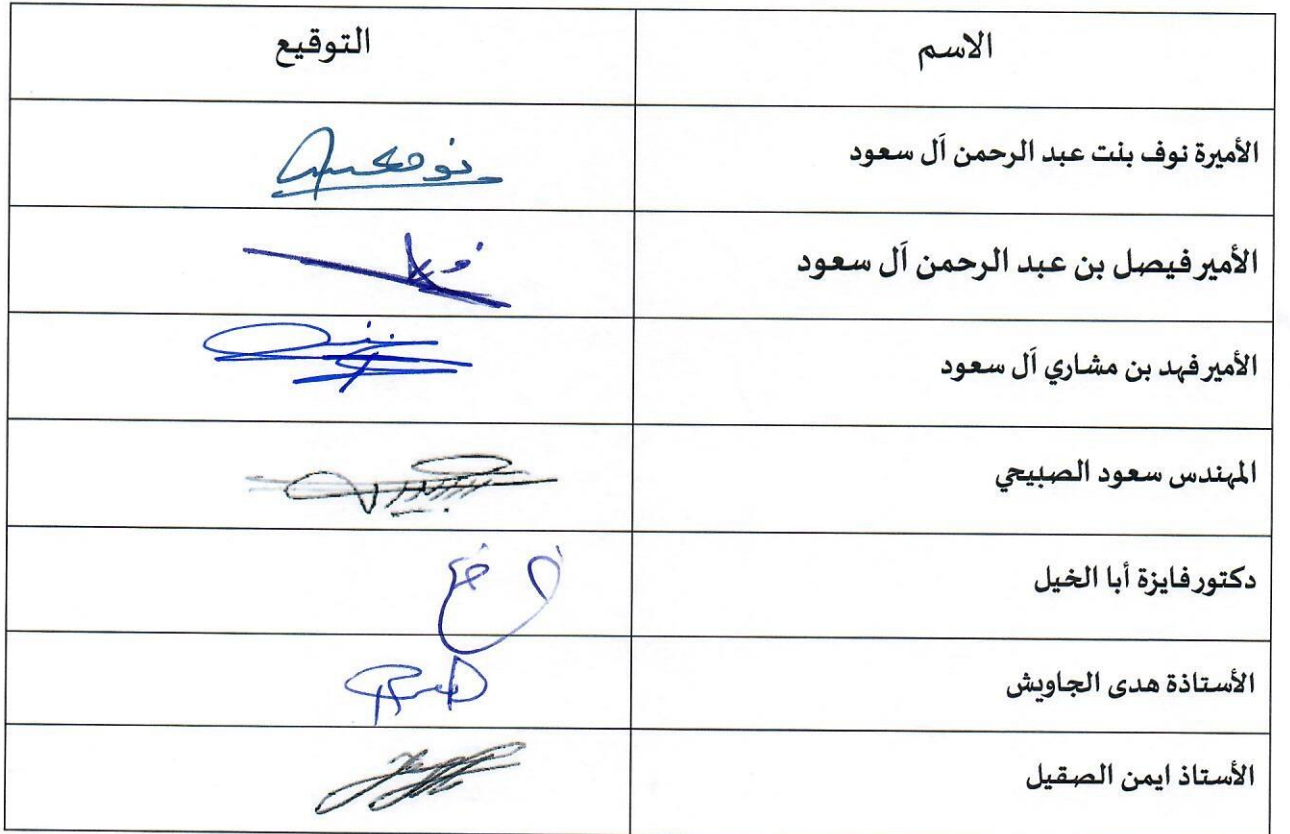 الاسم التوقيع
الأميرة نوف بنت عبد الرحمن آل سعود
الأمير فيصل بن عبد الرحمن آل سعود
الأمير فهد بن مشاري آل سعود
المهندس سعود الصبيحي
دكتور فايزة أبا الخيل
الأستاذة هدى الجاويش
الأستاذ ايمن الصقيل